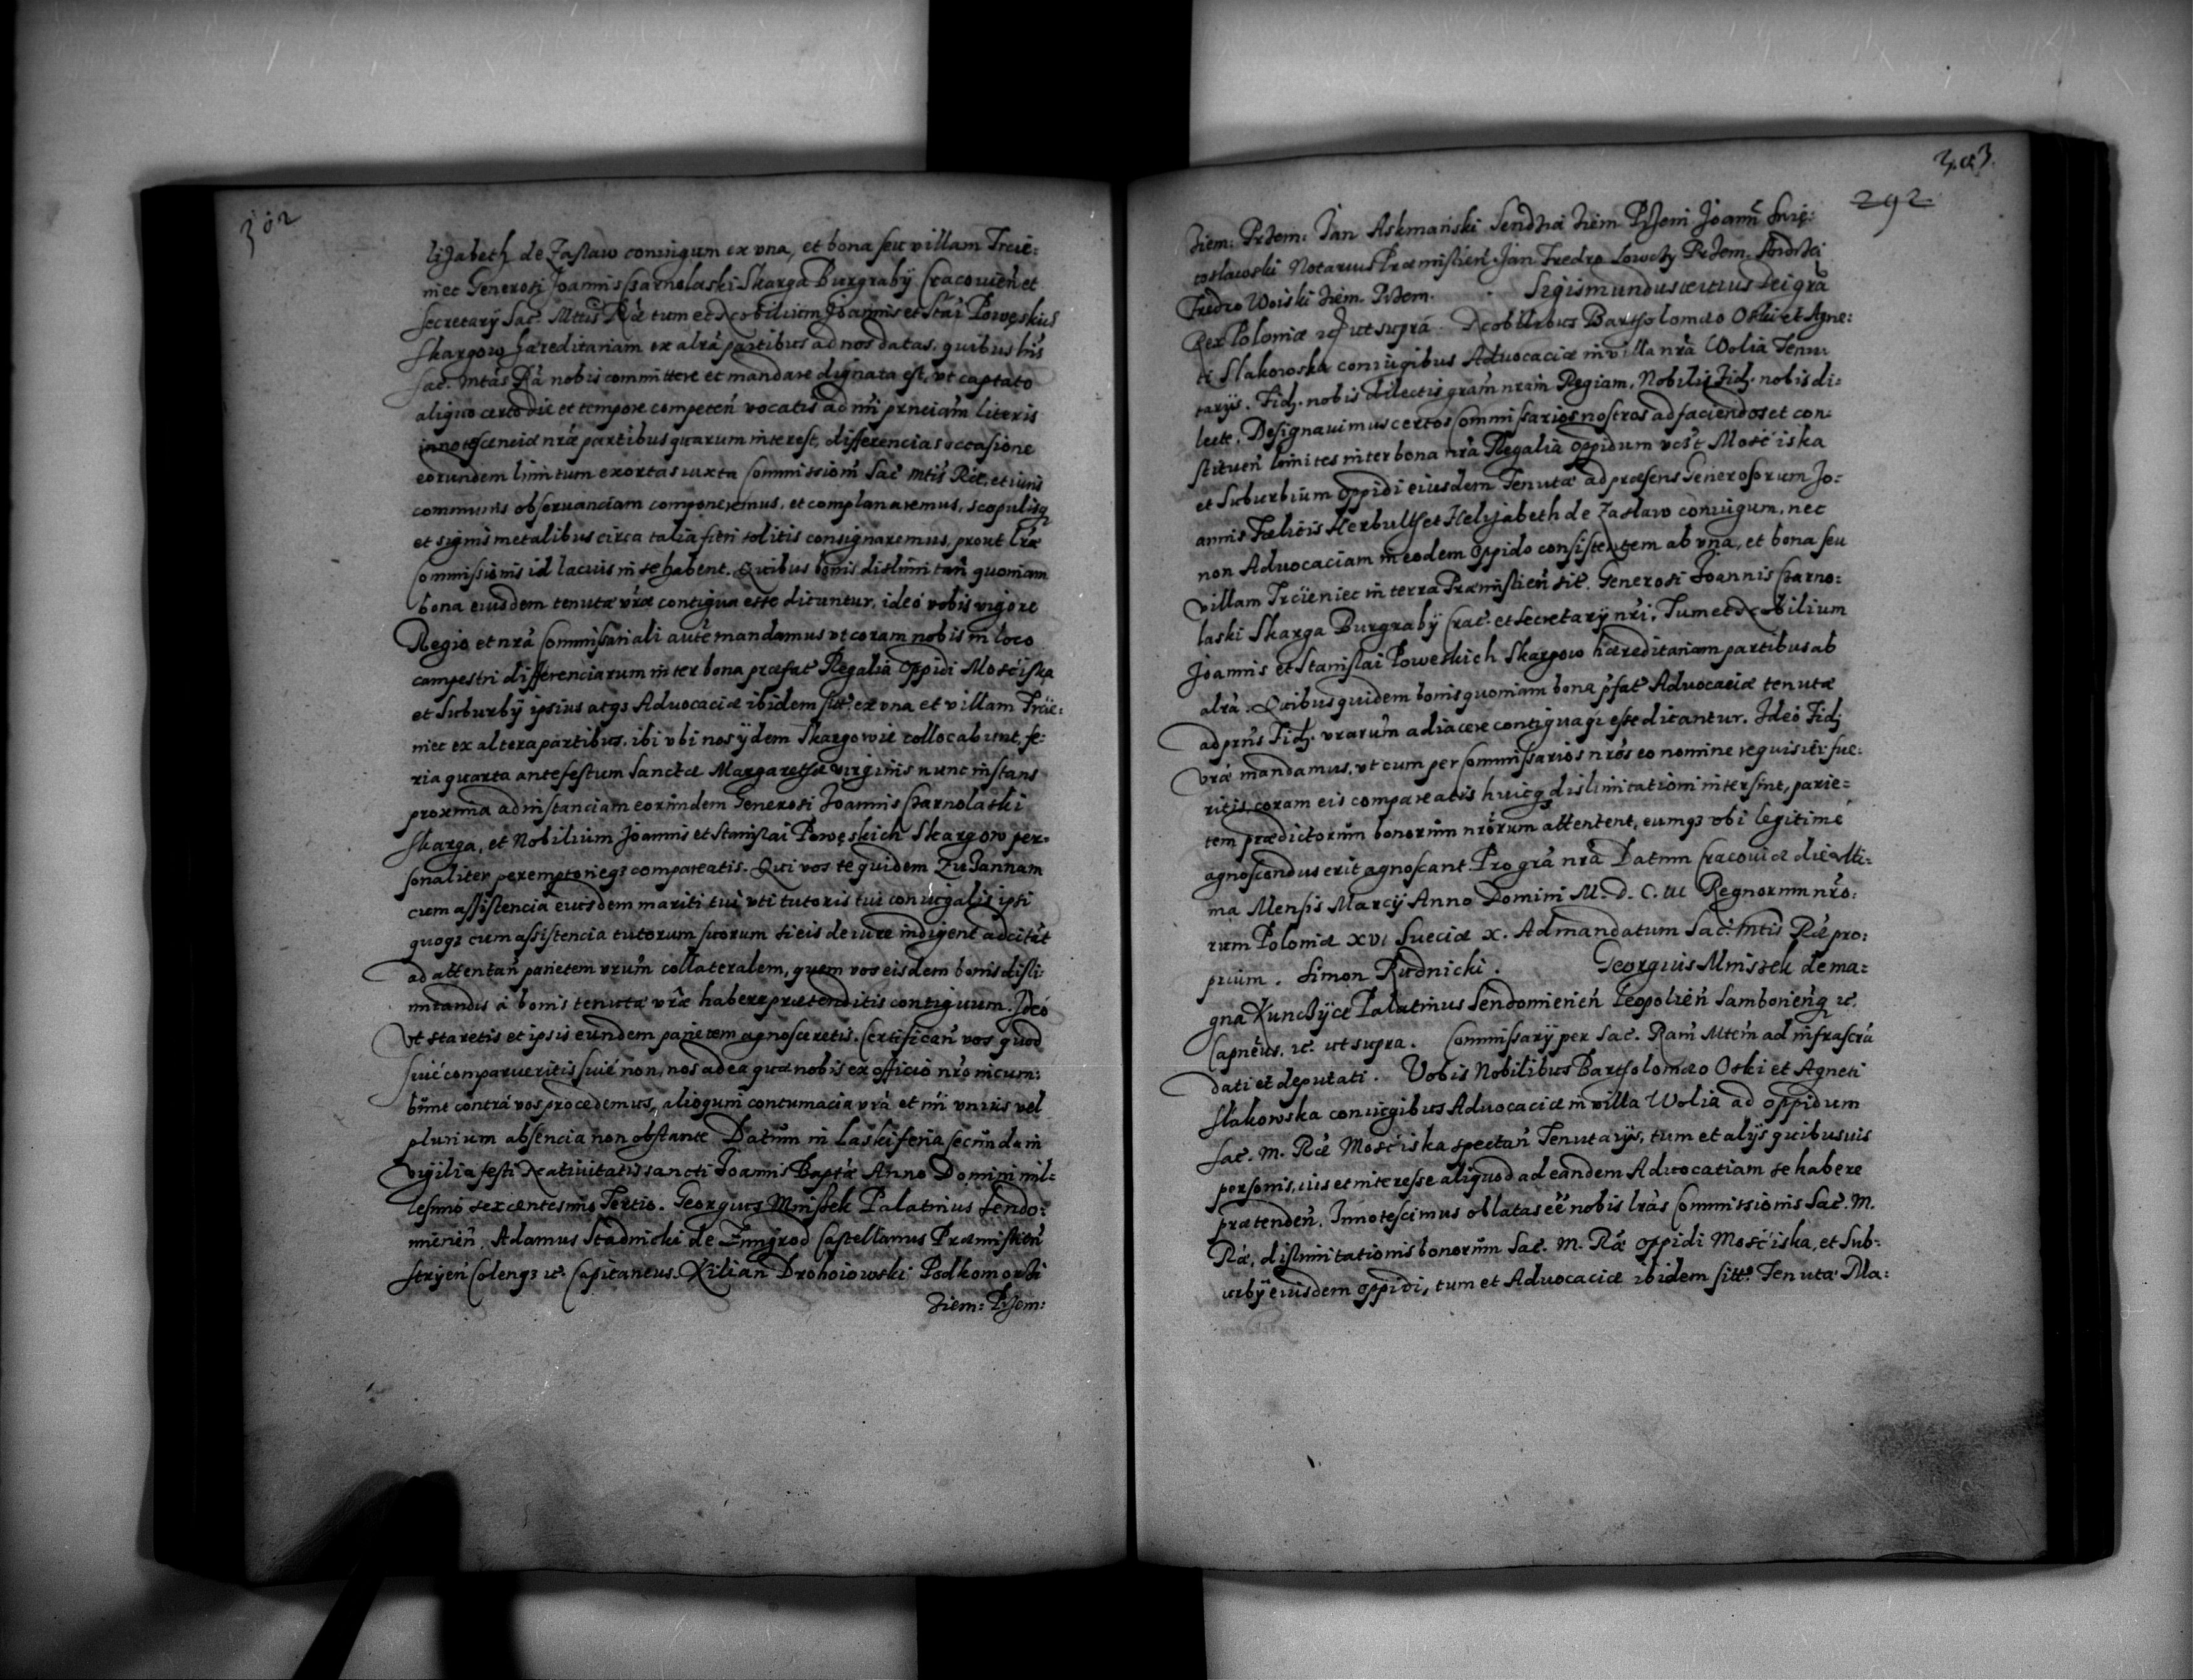 302
lizabeth de Zaslaw coniugum ex vna, et bona seu villam Trcie:
niec Generosi Joannis Czarnolaski Skarga Burgrabÿ Cracouień et
secretarÿ Sac. Mttis Rǽ tum et Nobilium Joannis et Stai Poweskich
Skargow haereditariam ex altrá partibus ad nos datas. quibus lris
Sac. Mtás Rá nobis committere et mandare dignata est, vt captato
aliquo certo die et tempore competeń vocatis ad nri prnciam literis
innotescenciae nrae partibus quarum interest, differencias occasione
eorundem limitum exortas iuxta Commissiom Sac Mtis Rie, et iuris
communis obseruanciam componeremus, et complanaremus, scopulisq
et signis metalibus circa talia fieri solitis consignaremus, prout lrae
Commissionis id lacius in se habent. Quibus bonis dislimitań quoniam
bona eiusdem tenutae vrae contigua esse dicuntur, ideó vobis vigore
Regio et nrá Commissariali autte mandamus vt coram nobis in loco
campestri differenciarum inter bona praefat Regalia oppidi Mośćiska
et Suburbÿ ipsius atqз Aduocaciae ibidem sitt ex vna et villam Trcie:
niec ex altera partibus. ibi vbi nos ÿdem Skargowie collocabunt, fe:
ria quarta ante festum Sanctae Margarethae virginis nunc instans
proxima ad instanciam eorundem Generosi Joannis Czarnolaski
Skarga, et Nobilium Joannis et Stanislai Poweskich Skargow per:
sonaliter peremptorieqз compareatis. Qui vos te quidem Zuzannam
cum assistencia eiusdem mariti tui vti tutoris tui coniugalis ipsi
quoqз cum assistencia tutorum suorum si eis de iure indigent adcitát
ad attentań parietem vrum collateralem, quem vos eisdem bonis disli:
mitandis á bonis tenutae vrae habere praetenditis contiguum. Ideó
vt staretis et ipsis eundem parietem agnosceretis. Certificań vos quod
siué comparueritis siué non, nos ad ea quae nobis ex officio nro incum:
bunt contrá vos procedemus, alioqum contumacia vrá et nri vnius vel
plurium absencia non obstante Datum in Laski feria secunda in
vigilia festi Natiuitatis sancti Joannis Baptae Anno Domini mil:
lesimo sexcentesimo Tertio. Georgius Mniszek Palatinus Sendo:
mirień, Adamus Stadnicki de Zmigrod Castellanus Praemislień
Stryeń Colenqз etc. Capitaneus. Kilian Drohoiowski Podkomorzi
Ziem: Przem:
303.
292
Ziem: Przem: Jan Askmański Sendzia Ziem Przem Joann Swię:
tosławski Notarius Praemislień Jan Fredro Lowczy Przem. Andrzei
Fredro Woiski Ziem. Przem. Sigismundus tertius Dei grá
Rex Poloniae etc ut suprá. Nobilibus Bartholomaeo Oski et Agne:
ti Slakowska coniugibus Aduocaciae in villa nrá Wolia Tenu:
tarÿs. Fidз. nobis dilectis gram nram Regiam. Nobiles Fidз. nobis di:
lecte. Designauimus certos Commissarios nostros ad faciendos et con:
stituen limites inter bona nrá Regalia oppidum vcst Mość iska
et Suburbium oppidi eiusdem Tenutae ad praesens Generosorum Jo:
annis Faelicis Herbulth et Helyzabeth de Zaslaw coniugum, nec
non Aduocaciam in eodem oppido consistentem ab vna, et bona seu
villam Trcieniec in terra Praemislień sit. Generosi Joannis Czarno:
laski Skarga Burgrabÿ Crac. et Secretarÿ nri, Tum et Nobilium
Joannis et Stanislai Poweskich Skargow haereditariam partibus ab
altrá. Quibus quidem bonis quoniam bona pfat Aduocaciae tenutae
ad prńs Fidз. vrarum adiacere contiguaqз esse dicantur. Ideó Fidз
vrae mandamus, vt cum per Commissarios nros eo nomine requisiti fue:
ritis coram eis compareatis huicqз dislimitationi intersint, parie:
tem praedictorum bonorum nrorum attentent, eumqз vbi legitimé
agnoscendus erit agnoscant. Pro grá nrá Datum Cracouiae die vlti:
ma Mensis Marcÿ Anno Domini M. D. C. III Regnorum nro:
rum Poloniae XVI Sueciae X. Ad mandatum Sac. Mtis Rae pro:
prium. Simon Rudnicki. Georgius Mniszek de ma:
gna Kunczÿce Palatinus Sendomirień Leopolień Samborienq etc.
Capneus. etc. ut supra. Commissarÿ per Sac. Ram Mtem ad infrascrá
dati et deputati. Vobis Nobilibus Bartholomaeo Oski et Agneti
Slakowska coniugibus Aduocaciae in villa Wolia ad oppidum
Sac. M. Rae Mość iska spectań Tenutarÿs, tum et alÿs quibusuis
personis, ius et interesse aliquod ad eandem Aduocatiam se habere
praetendeń. Innotescimus oblatas eé nobis lrás Commissionis Sac. M.
Rae, dislimitationis bonorum Sac. M. Rae oppidi Mość iska, et Sub:
urbÿ eiusdem oppidi, tum et Aduocaciae ibidem sitt. Tenutae Ma: